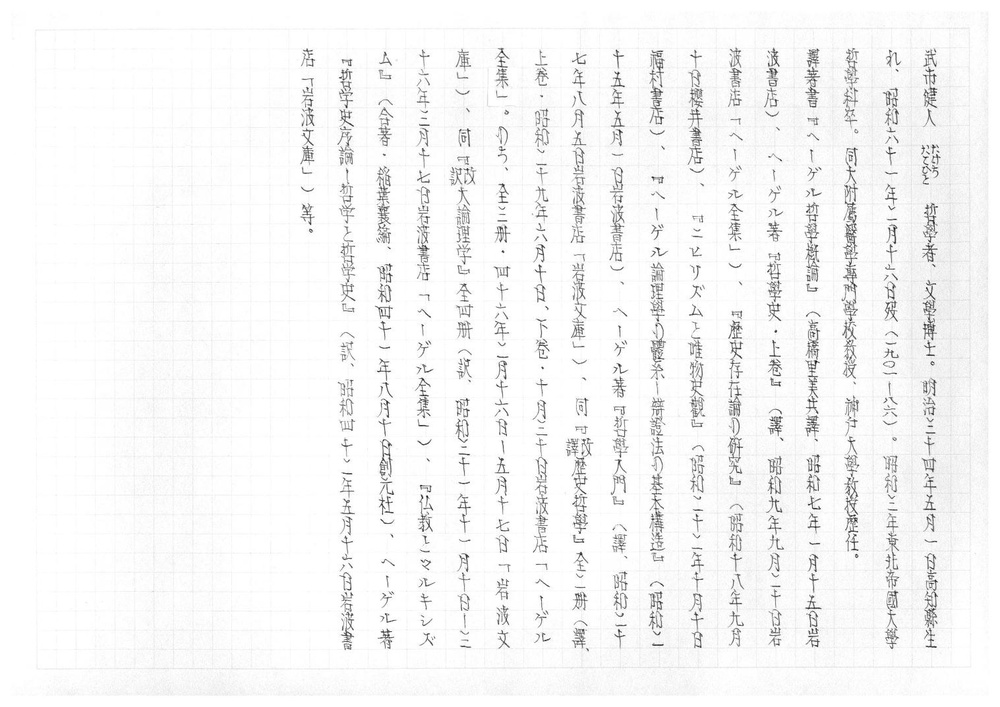 武市健人 たけちたてひと 哲學者、文學博士。明治三十四年五月一日高知縣生
れ、昭和六十一年一月十六日歿（一九〇一ー八六）。昭和三年東北帝國大學
哲學科卒。同大附属醫學專門學校教授、神戸大學教授歴任。
譯著書『ヘーゲル哲學概論』（高橋里美共譯、昭和七年一月十五日岩
波書店）、ヘーゲル著『哲學史・上卷』（譯、昭和九年九月二十日岩
波書店「ヘーゲル全集」）、『歴史存在論の研究』（昭和十八年九月
十日櫻井書店）、『ニヒリズムと唯物史觀』（昭和二十二年十月十日
福村書店）、『ヘーゲル論理學の體系ー辯證法の基本構造』（昭和二
十五年五月一日岩波書店）、ヘーゲル著『哲學入門』（譯、昭和二十
七年八月五日岩波書店「岩波文庫」）、同『改譯歴史哲學』全二册（譯、
上卷・昭和二十九年六月十日、下卷・十月三十日岩波書店「ヘーゲル
全集」。のち、全三册・四十六年一月十六日ー五月十七日「岩波文
庫」）、同『改訳大論理学』全四册（訳、昭和三十一年十一月十日ー三
十六年三月十七日岩波書店「ヘーゲル全集」）、『仏教とマルキシズ
ム』（合著・稲葉襄編、昭和四十一年八月十日創元社）、ヘーゲル著
『哲学史序論ー哲学と哲学史』（訳、昭和四十二年五月十六日岩波書
店「岩波文庫」）等。